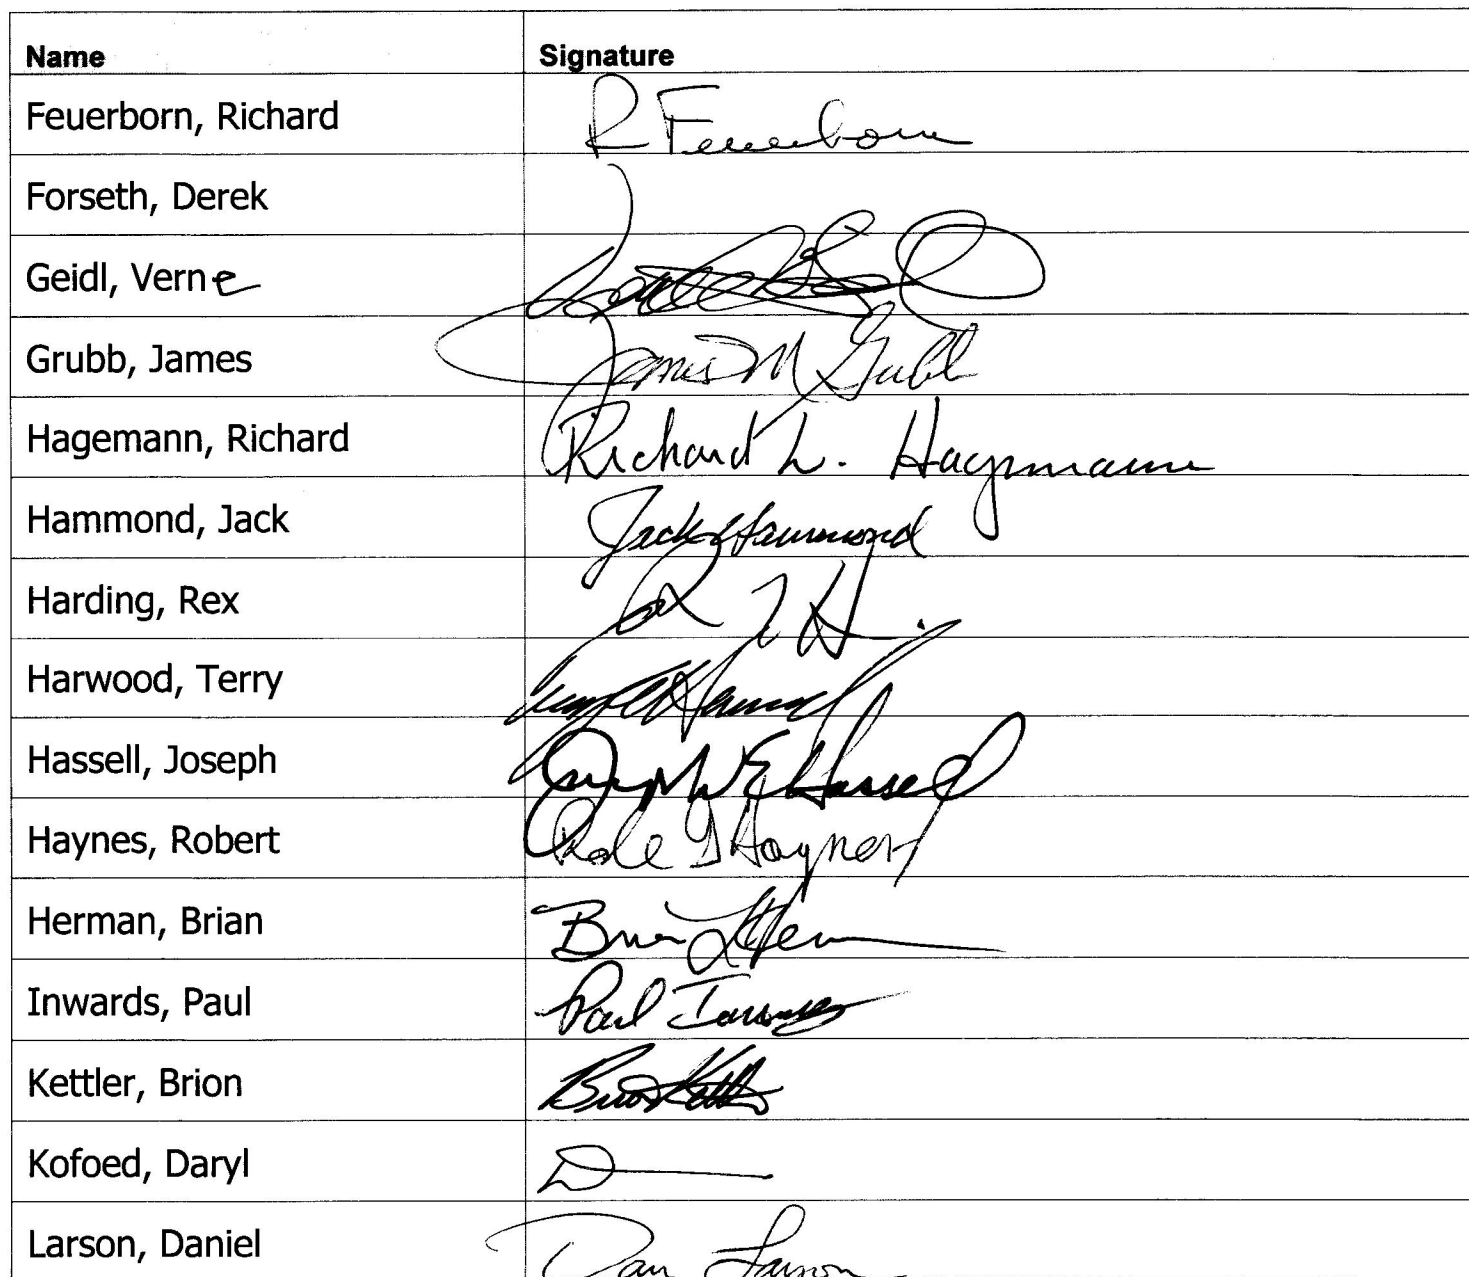 Name Signature
Feuerborn, Richard R Feuerborn
Forseth, Derek
Geidl, Verne
Grubb, James James M Grubb
Hagemann, Richard Richard L. Hagemann
Hammond, Jack Jack Hammond
Harding, Rex
Harwood, Terry
Hassell, Joseph Joseph W E Hassell
Haynes, Robert Haynes
Herman, Brian Brian L Herman
Inwards, Paul Paul Inwards
Kettler, Brion Brion Kettler
Kofoed, Daryl D
Larson, Daniel Dan Larson